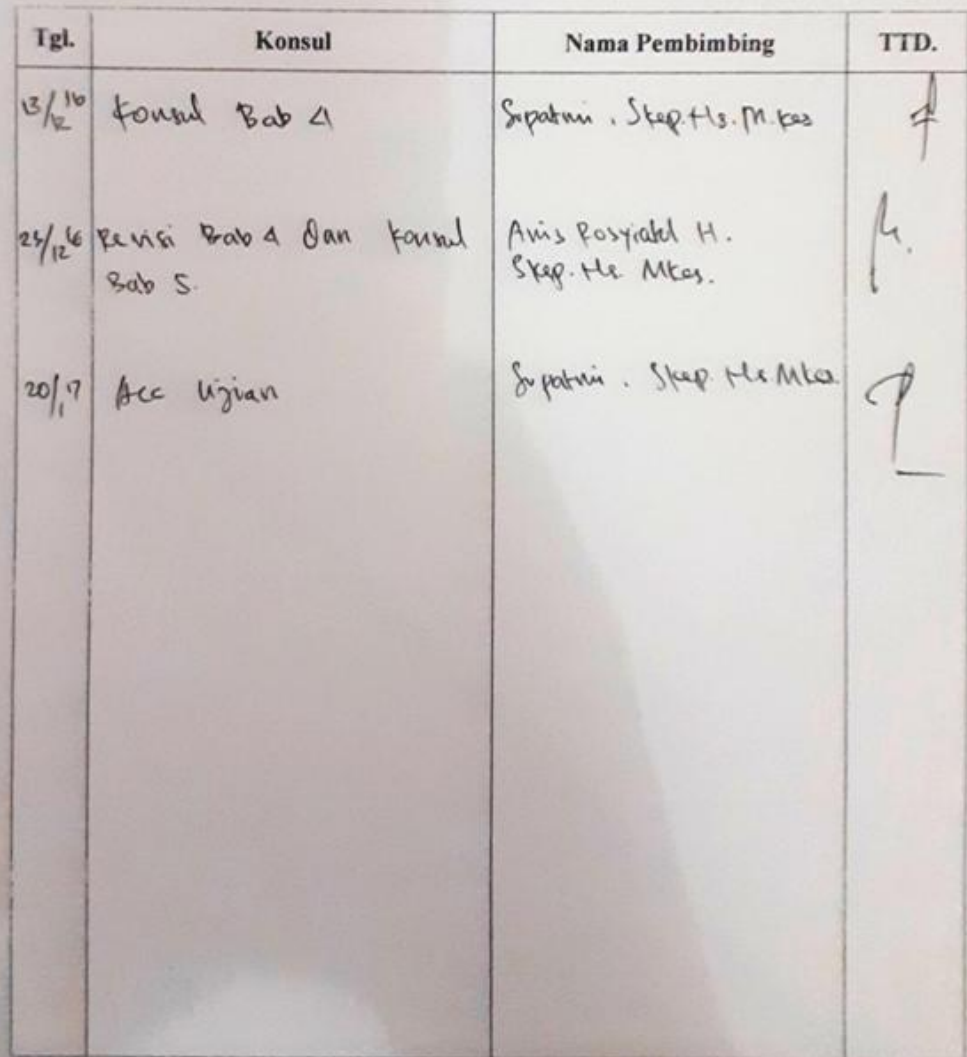 Tgl. Konsul Nama Pembimbing TTD.
13/12 16 Konsul Bab 4 Supatmi . Skep. Ns. M. kes
25/12 16 Revisi Bab 4 dan konsul Anis Rosyiatul H.
Bab 5. Skep. Ns Mkes.
20/1 17 Acc Ujian Supatmi . Skep. Ns Mkes.